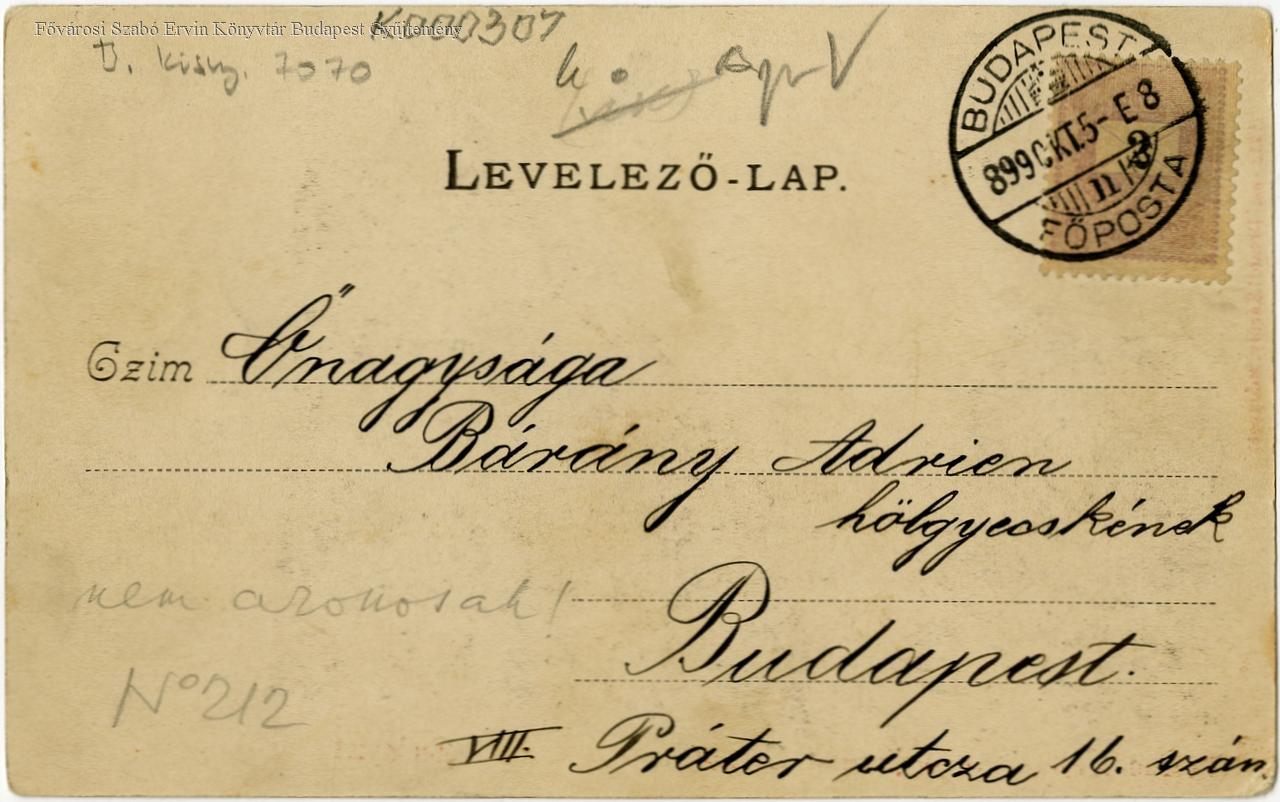 Fővárosi Szabó Ervin Könyvtár Budapest Gyűjtemény
K000307
B. kisny. 7070
LEVELEZŐ-LAP.
BUDAPEST
899 OKT. 5- E 8
n 3
FŐPOSTA
Czim Őnagysága
Bárány Adrien
hölgyecskének
nem azonosak!
Budapest.
No 212
VIII. Práter utcza 16. szám.